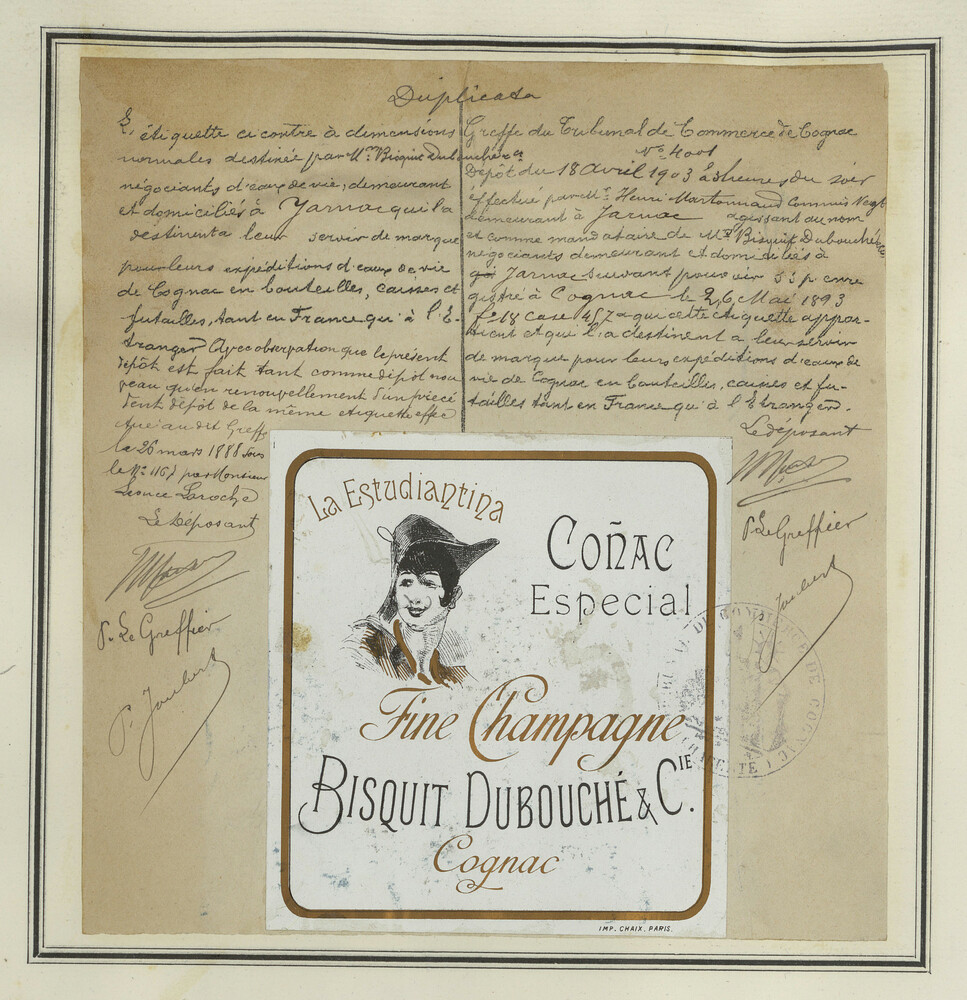 Duplicata
L'étiquette ci contre à dimensions
normales destinée par Mrs Bisquit Dubouché & Ce
négociants d'eaux de vie, demeurant
et domiciliés à Jarnac qui la
destinent a leur servir de marque
pour leurs expéditions d'eaux de vie
de Cognac en bouteilles, caisses et
futailles, tant en France qu'à l'É-
tranger. Avec observation que le présent
dépôt est fait tant comme dépôt nou
veau qu'en renouvellement d'un précé
dent dépôt de la même etiquette effec
tué au dit Greffe
le 26 mars 1888 sous
le No 1167 par Monsieur
Léonce Laroche
Le Déposant
P. Le Greffier
P. Joubert
Greffe du Tribunal de Commerce de Cognac
No 4001
Dépôt du 18 Avril 1903 à 3 heures du soir
éffectué par Mr Henri Martonnaud Commis Negt
demeurant à Jarnac agissant au nom
et comme mandataire de Mrs Bisquit Dubouché & Ce
négociants demeurant et domiciliés à
Jarnac suivant pouvoir s s p enre
gistré à Cognac le 26 Mai 1893
fo 18 case 457 que cette étiquette appar-
tient et qu'il la destinent a leur servir
de marque pour leurs expéditions d'eaux de
vie de Cognac en bouteilles, caisses et fu-
tailles tant en France qu'à l'Etranger.
Le déposant
P. Le Greffier
Joubert
La Estudiantina
Coñac
Especial
Fine Champagne
Bisquit Dubouché & Cie.
Cognac
IMP. CHAIX, PARIS.